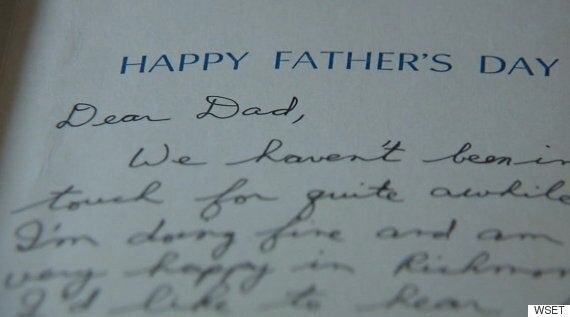 HAPPY FATHER'S DAY
Dear Dad,
We haven't been in
touch for quite awhile
I'm doing fine and am
very happy in Richmon
I'd like to hear
WSET